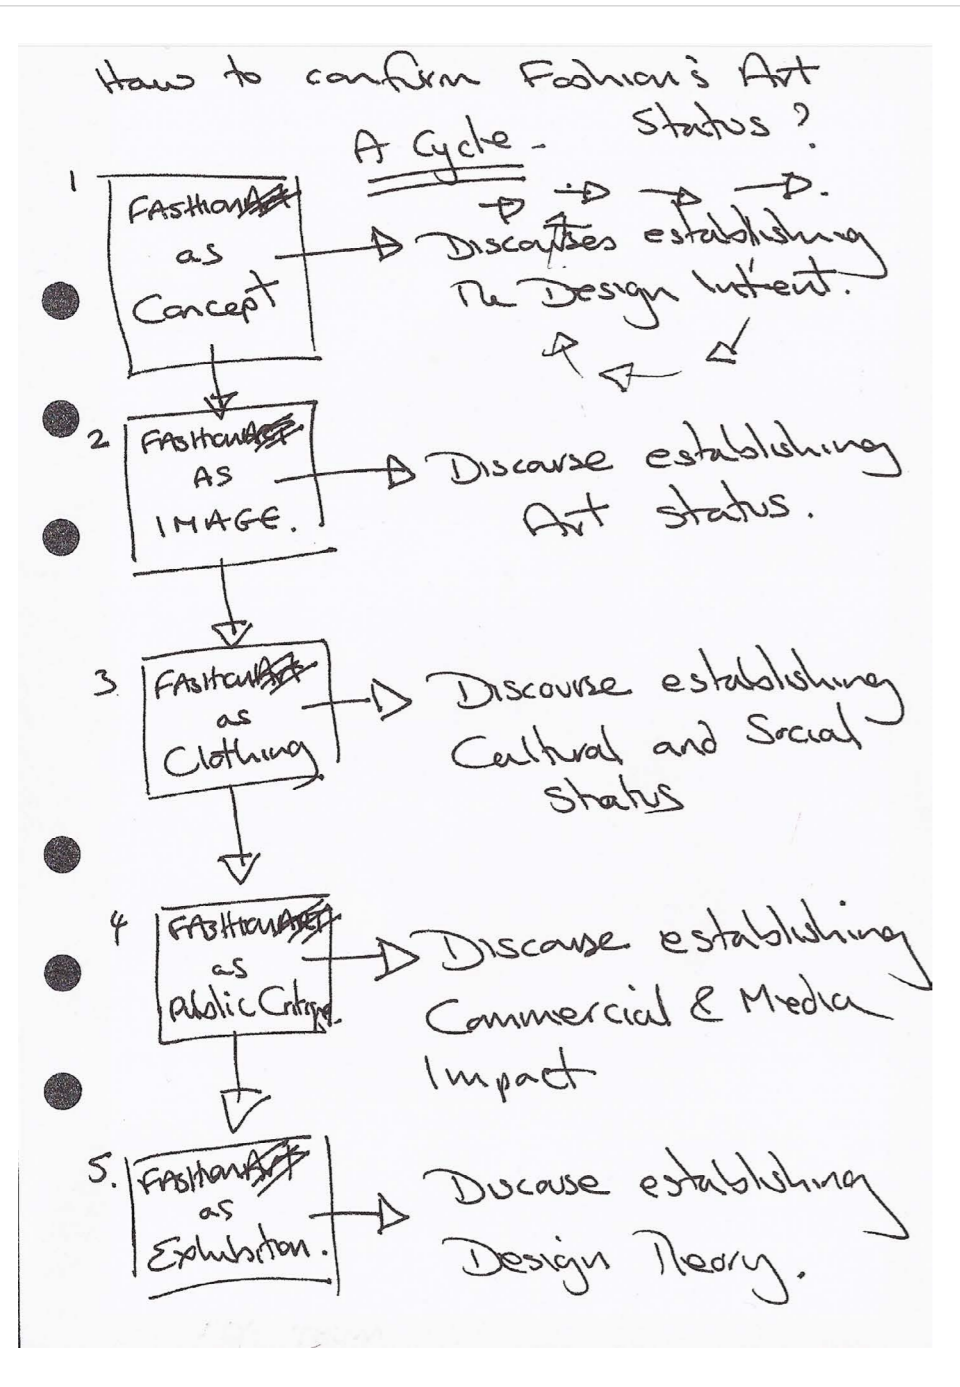 How to confirm Fashion's Art
Status?
A Cycle.
1
FASHIONArt
as
Concept
Discourses establishing
The Design Intent.
2
FASHIONART
AS
IMAGE.
Discourse establishing
Art status.
3.
FASHIONArt
as
Clothing
Discourse establishing
Cultural and Social
Status
4
FASHIONART
as
Public Critique.
Discourse establishing
Commercial & Media
Impact
5.
FASHIONArt
as
Exhibition.
Discourse establishing
Design Theory.